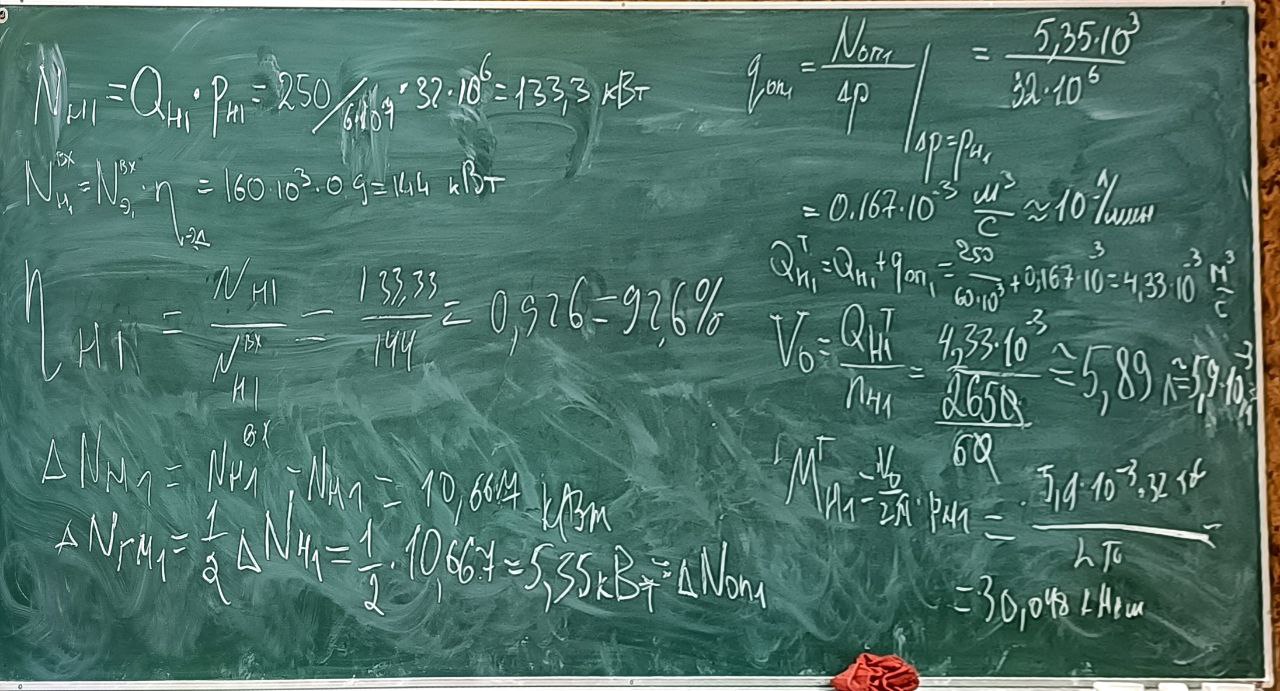 N_H1 = Q_H1 · p_H1 = 250/6·10⁴ · 32·10⁶ = 133,3 кВт
N_H1^вх = N_Э1^вх · η_ЭД = 160·10³·0.9 = 144 кВт
η_H1 = N_H1 / N_H1^вх = 133,33 / 144 = 0,926 = 92,6%
ΔN_H1 = N_H1^вх - N_H1 = 10,667 кВт
ΔN_ГМ1 = 1/2 ΔN_H1 = 1/2 · 10,667 = 5,35 кВт = ΔN_оп1
q_оп1 = N_оп1 / Δp |Δp=p_H1 = 5,35·10³ / 32·10⁶
= 0.167·10⁻³ м³/с ≈ 10 л/мин
Q_H1^T = Q_H1 + q_оп1 = 250 / 60·10³ + 0,167·10⁻³ = 4,33·10⁻³ м³/с
V_0 = Q_H1^T / n_H1 = 4,33·10⁻³ / (2650/60) ≈ 5,89 л ≈ 5,9·10⁻³
M_H1^T = V_0/2π · p_H1 = 5,9·10⁻³·32·10⁶
= 30,048 кНм